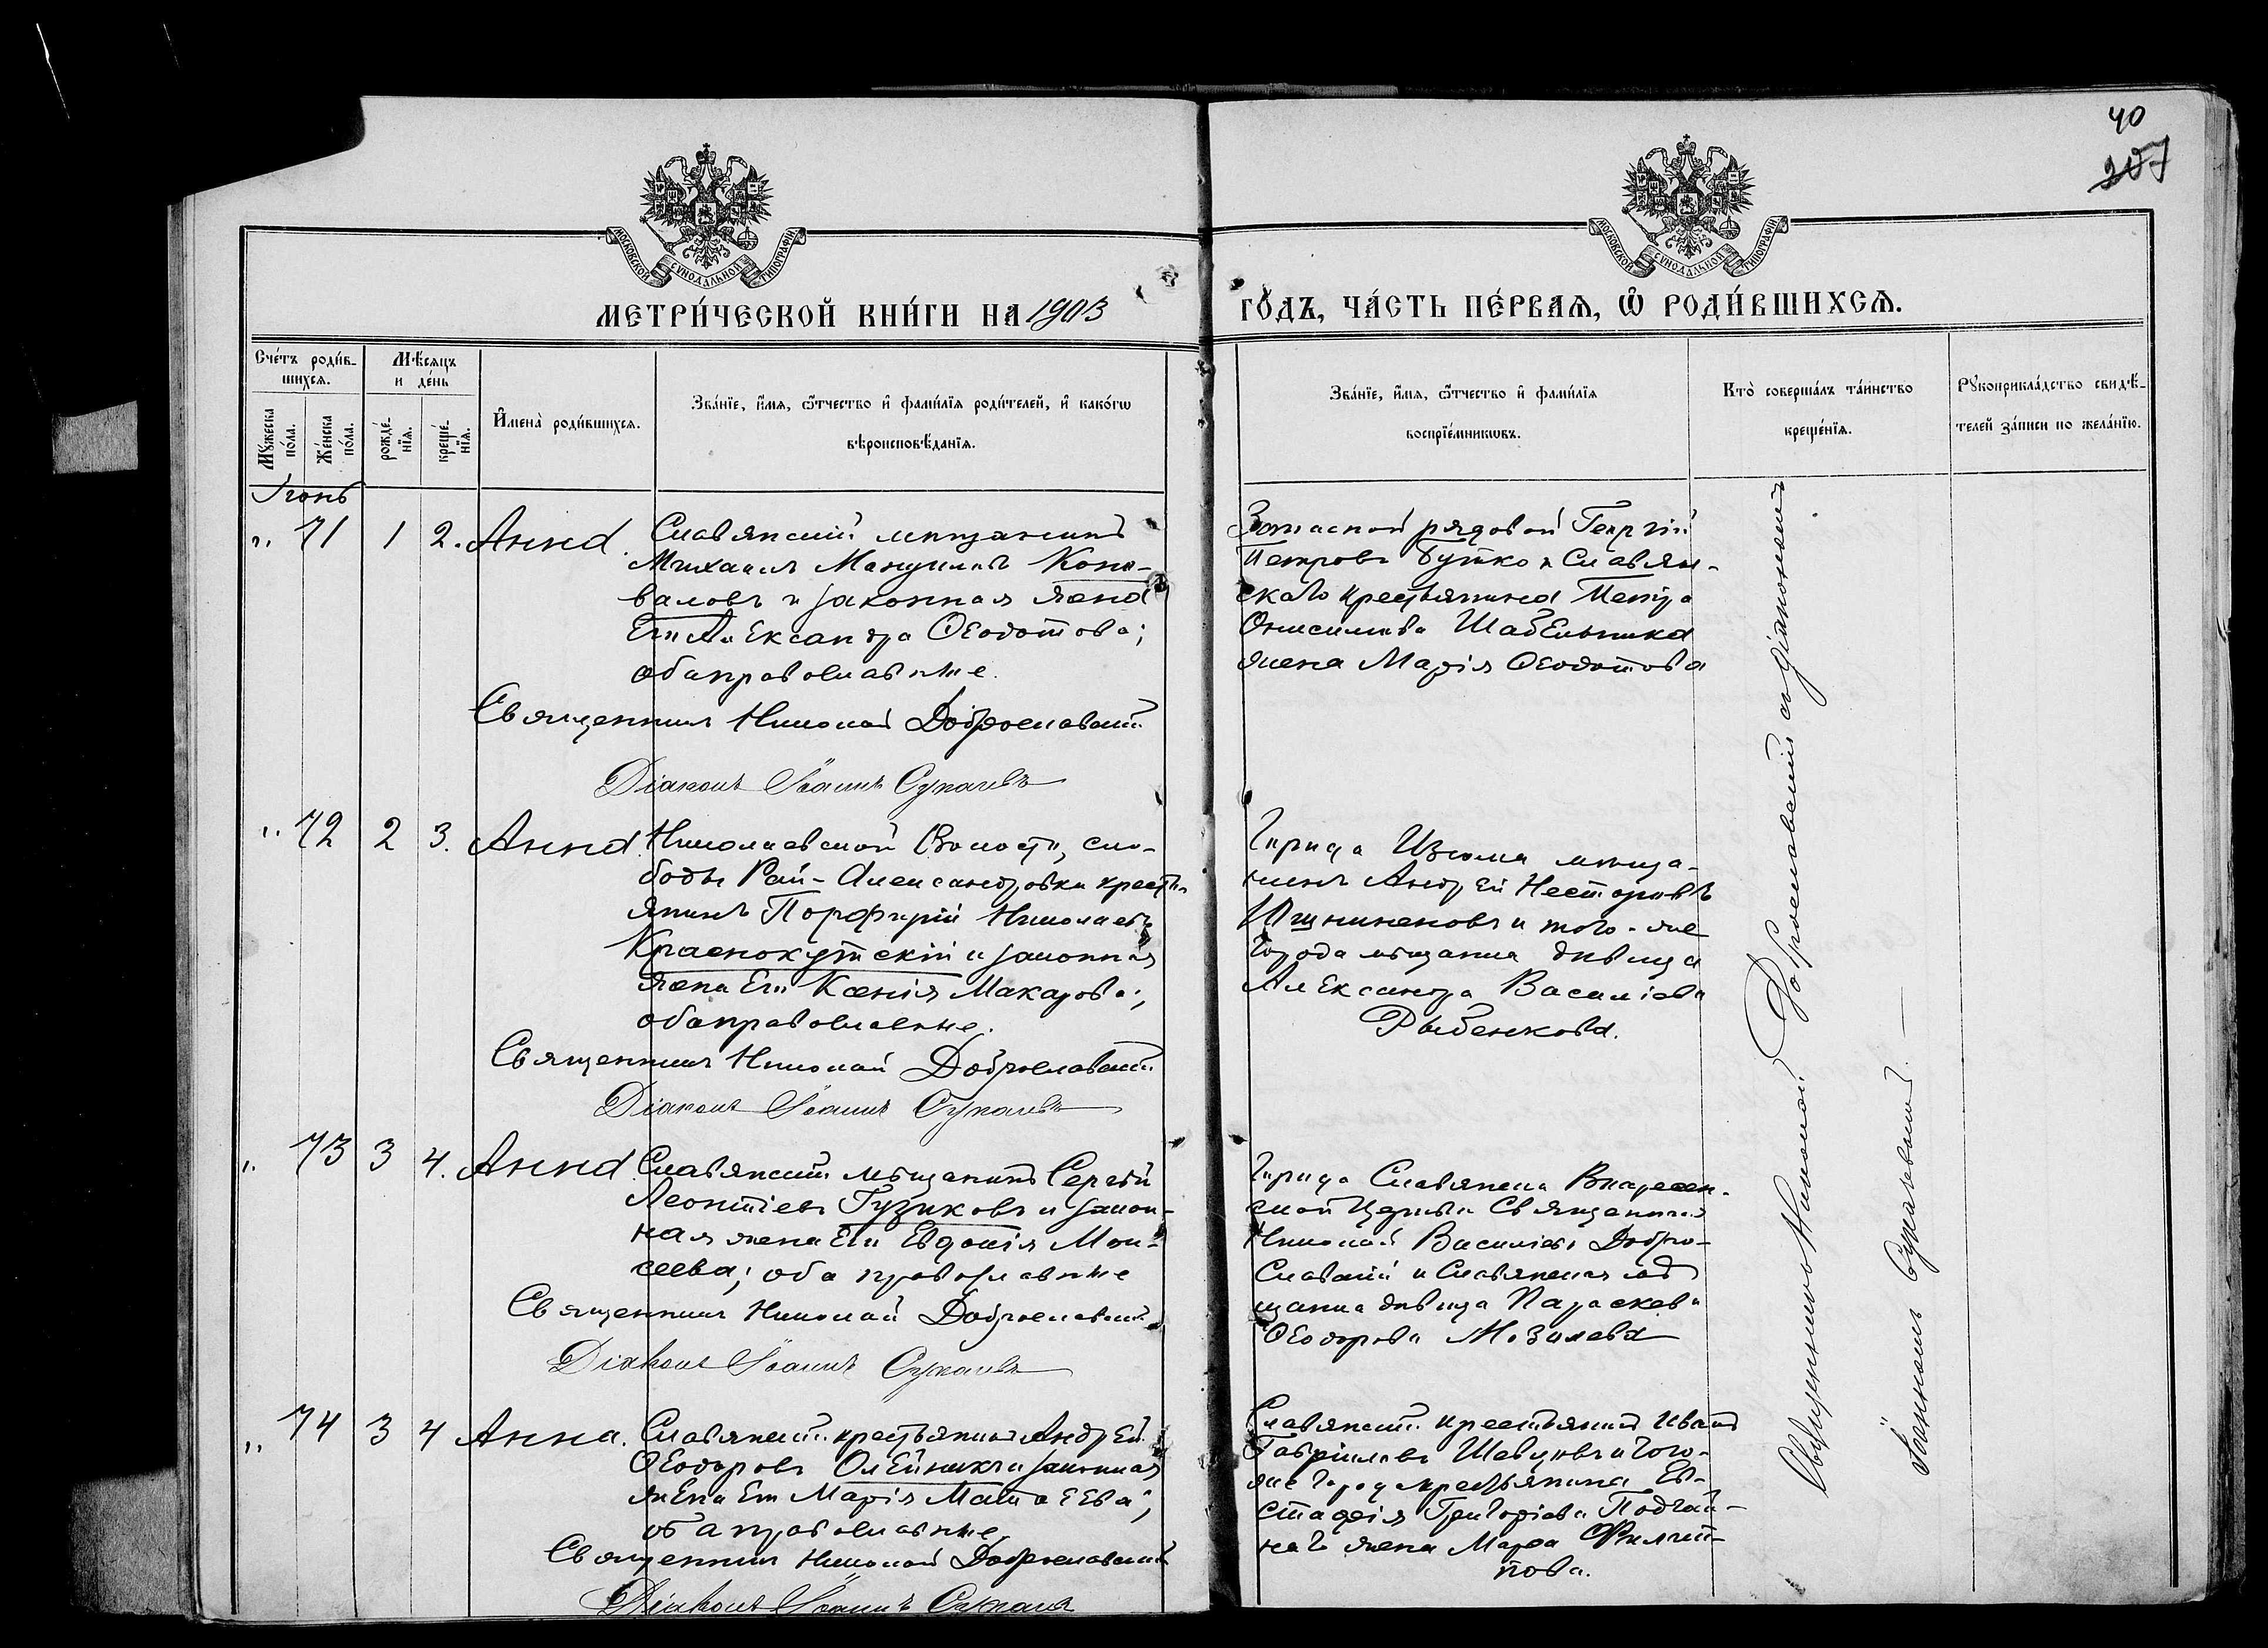 40
207
МОСКОВСКОЙ СУНОДАЛЬНОЙ ТИПОГРАФІИ
МОСКОВСКОЙ СУНОДАЛЬНОЙ ТИПОГРАФІИ
МЕТРИ́ЧЕСКОЙ КНИ́ГИ НА 1903
ГО́ДЪ, ЧА́СТЬ ПЕ́РВАЯ, Ѡ РОДИ́ВШИХСЯ.
Сче́тъ роди́в-
шихся.
Мꙋжеска по́ла.
Же́нска по́ла.
Мѣсяцъ
и де́нь
рожде́-
нїя.
креще́-
нїя.
Имена̀ роди́вшихся.
Зва́нїе, и́мя, ѻ҆́тчество и҆ фами́лїя роди́телей, и҆ како́гѡ
вѣроисповѣ́данїя.
Зва́нїе, и́мя, ѻ҆́тчество и҆ фами́лїя
воспрїе́мникѡвъ.
Кто̀ соверша́лъ та́инство
креще́нїя.
Рꙋкоприкла́дство свидѣ́-
телей за́писи по жела́нїю.
Іюнь
" 71 1 2. Анна. Славянскій мѣщанинъ
Михаилъ Мануиловъ Коно-
валовъ и законная жена
Его Александра Ѳеодотова;
оба православные.
Священникъ Николай Доброславскій
Діаконъ Іоаннъ Сукачевъ
Запасной рядовой Георгій
Петровъ Бутко и Славян-
скаго крестьянина Петра
Онисимова Шабельника
жена Марія Ѳеодотова
" 72 2 3. Анна. Николаевской Волости, сло-
боды Рай-Александровки кресть-
янинъ Порфирій Николаевъ
Краснокутскій и законная
жена Его Ксенія Макарова;
оба православные.
Священникъ Николай Доброславскій
Діаконъ Іоаннъ Сукачевъ
Города Изюма мѣща-
нинъ Андрей Несторовъ
и того-же
города мѣщанка дѣвица
Александра Василіева
Рыбенкова.
" 73 3 4. Анна. Славянскій мѣщанинъ Сергѣй
Леонтіевъ Гузиковъ и закон-
ная жена Его Евдокія Мои-
сеева; оба православные
Священникъ Николай Доброславскій
Діаконъ Іоаннъ Сукачевъ
Города Славянска Воскресен-
ской Церкви Священникъ
Николай Василіевъ Добро-
славскій и Славянская мѣ-
щанка дѣвица Параскева
Ѳеодорова
" 74 3 4 Анна. Славянскій крестьянинъ Андрей
Ѳеодоровъ Олейникъ и законная
жена Его Марія Матѳеева;
оба православные
Священникъ Николай Доброславскій
Діаконъ Іоаннъ Сукачевъ
Славянскій крестьянинъ Иванъ
Гавріиловъ и того-
же города крестьянина Ев-
стафія Григоріева Подгай-
наго жена Марѳа Филип-
пова.
Священникъ Николай Доброславскій съ діакономъ
Іоанномъ Сукачевымъ.